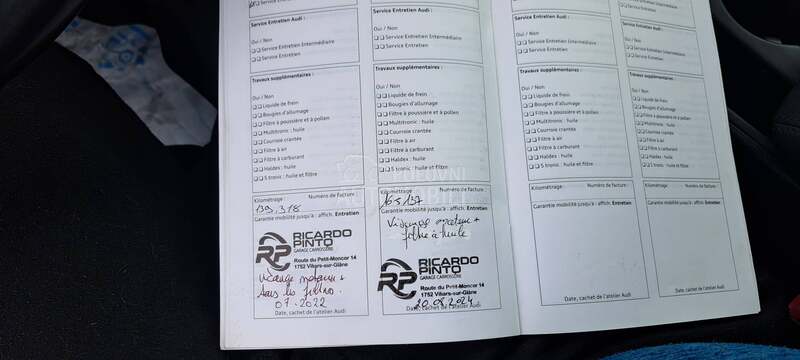 Service Entretien Audi :
Oui / Non
Service Entretien Intermédiaire
Service Entretien
Travaux supplémentaires :
Oui / Non
Liquide de frein
Bougies d'allumage
Filtre à poussière et à pollen
Multitronic : huile
Courroie crantée
Filtre à air
Filtre à carburant
Haldex : huile
S tronic : huile et filtre
Kilométrage : Numéro de facture :
139.378
Garantie mobilité jusqu'à : affich. Entretien
RICARDO
PINTO
GARAGE CARROSSERIE
Route du Petit-Moncor 14
1752 Villars-sur-Glâne
vidange moteur +
tous les filtres.
07.2022
Date, cachet de l'atelier Audi
Service Entretien Audi :
Oui / Non
Service Entretien Intermédiaire
Service Entretien
Travaux supplémentaires :
Oui / Non
Liquide de frein
Bougies d'allumage
Filtre à poussière et à pollen
Multitronic : huile
Courroie crantée
Filtre à air
Filtre à carburant
Haldex : huile
S tronic : huile et filtre
Kilométrage : Numéro de facture :
165137
Garantie mobilité jusqu'à : affich. Entretien
Vidange moteur +
filtre à huile
RICARDO
PINTO
GARAGE CARROSSERIE
Route du Petit-Moncor 14
1752 Villars-sur-Glâne
20.08.2024
Date, cachet de l'atelier Audi
Service Entretien Audi :
Oui / Non
Service Entretien Intermédiaire
Service Entretien
Travaux supplémentaires :
Oui / Non
Liquide de frein
Bougies d'allumage
Filtre à poussière et à pollen
Multitronic : huile
Courroie crantée
Filtre à air
Filtre à carburant
Haldex : huile
S tronic : huile et filtre
Kilométrage : Numéro de facture :
Garantie mobilité jusqu'à : affich. Entretien
Date, cachet de l'atelier Audi
Service Entretien Intermédiaire
Service Entretien Audi :
Oui / Non
Service Entretien Intermédiaire
Service Entretien
Travaux supplémentaires :
Oui / Non
Liquide de frein
Bougies d'allumage
Filtre à poussière et à pollen
Multitronic : huile
Courroie crantée
Filtre à air
Filtre à carburant
Haldex : huile
S tronic : huile et filtre
Kilométrage : Numéro de facture :
Garantie mobilité jusqu'à : affich. Entretien
Date, cachet de l'atelier Audi